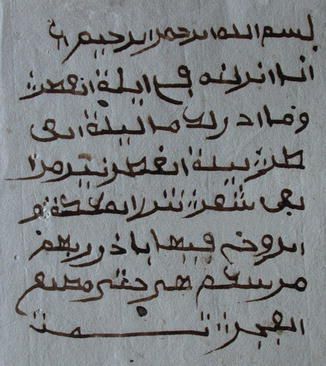 بسم الله الرحمن الرحيم
انا انزلنه في ليلة القدر
وما ادريك ما ليلة الق
در ليلة القدر خير من
الف شهر تنزل الملئكة و
الروح فيها باذن ربهم
سلم هي حتى مطلع
الفجر تمت